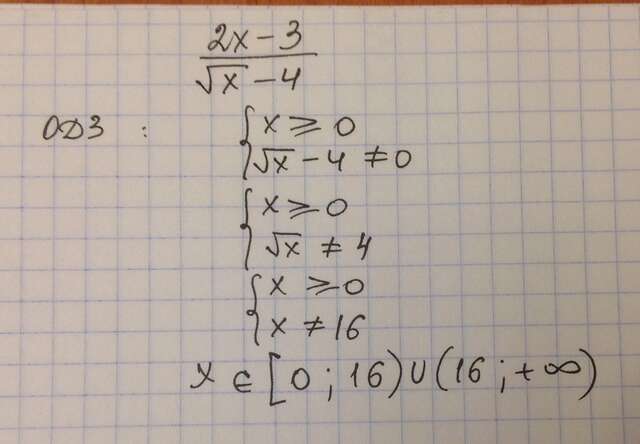 2x - 3
√x - 4
ОДЗ : { x ≥ 0
√x - 4 ≠ 0
{ x ≥ 0
√x ≠ 4
{ x ≥ 0
x ≠ 16
x ∈ [0 ; 16) ∪ (16 ; +∞)